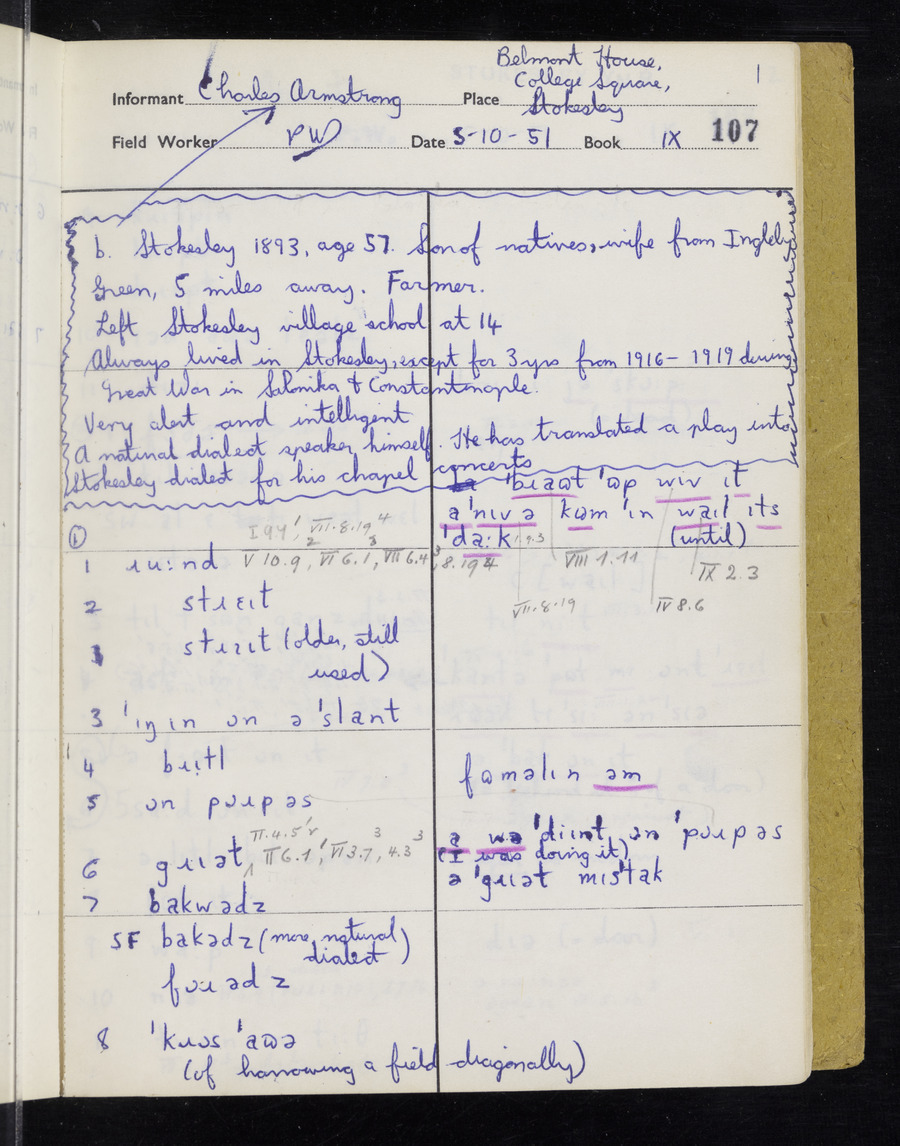 Belmont House,
College Square,
1
Informant Charles Armstrong Place Stokesley
Field Worker PW Date 5-10-51 Book IX 107
b. Stokesley 1893, age 57. Son of natives, wife from Ingleby
Green, 5 miles away. Farmer.
Left Stokesley village school at 14
Always lived in Stokesley, except for 3 yrs from 1916-1919 during
Great War in Salonika & Constantinople.
Very alert and intelligent
A natural dialect speaker himself. He has translated a play into
Stokesley dialect for his chapel concerts
ˈbɹaʊt ˈʊp wiv ɪt
ə ˈnɪvə kʊm ˈin waɪl ɪts
ˈda:k 1.9.3 (until)
① VII.8.19
1 ɹu:nd V 10.9, VI 6.1, VII 6.4, 8.19 VIII 1.11 IX 2.3
VII.8.19 IV 8.6
2 stɹɛɪt
stɹɪɪt (older, still
used)
3 ˈɪŋ ɪn ɒn ə ˈslant
4 bɪɪtl famәlɪn am
5 ɒn pɒɹpəs
II.4.5
6 gɹɪət II 6.1, VI 3.7, 4.3
a wə ˈdɪɪnt ɒn ˈpɒɹpəs
(I was doing it)
ə ˈgɹɪət mɪsˈtak
7 bakwədz
SF bakədz (more natural
dialect)
fɒɹədz
8 ˈkɹɒs ˈaʊə
(of harrowing a field diagonally)